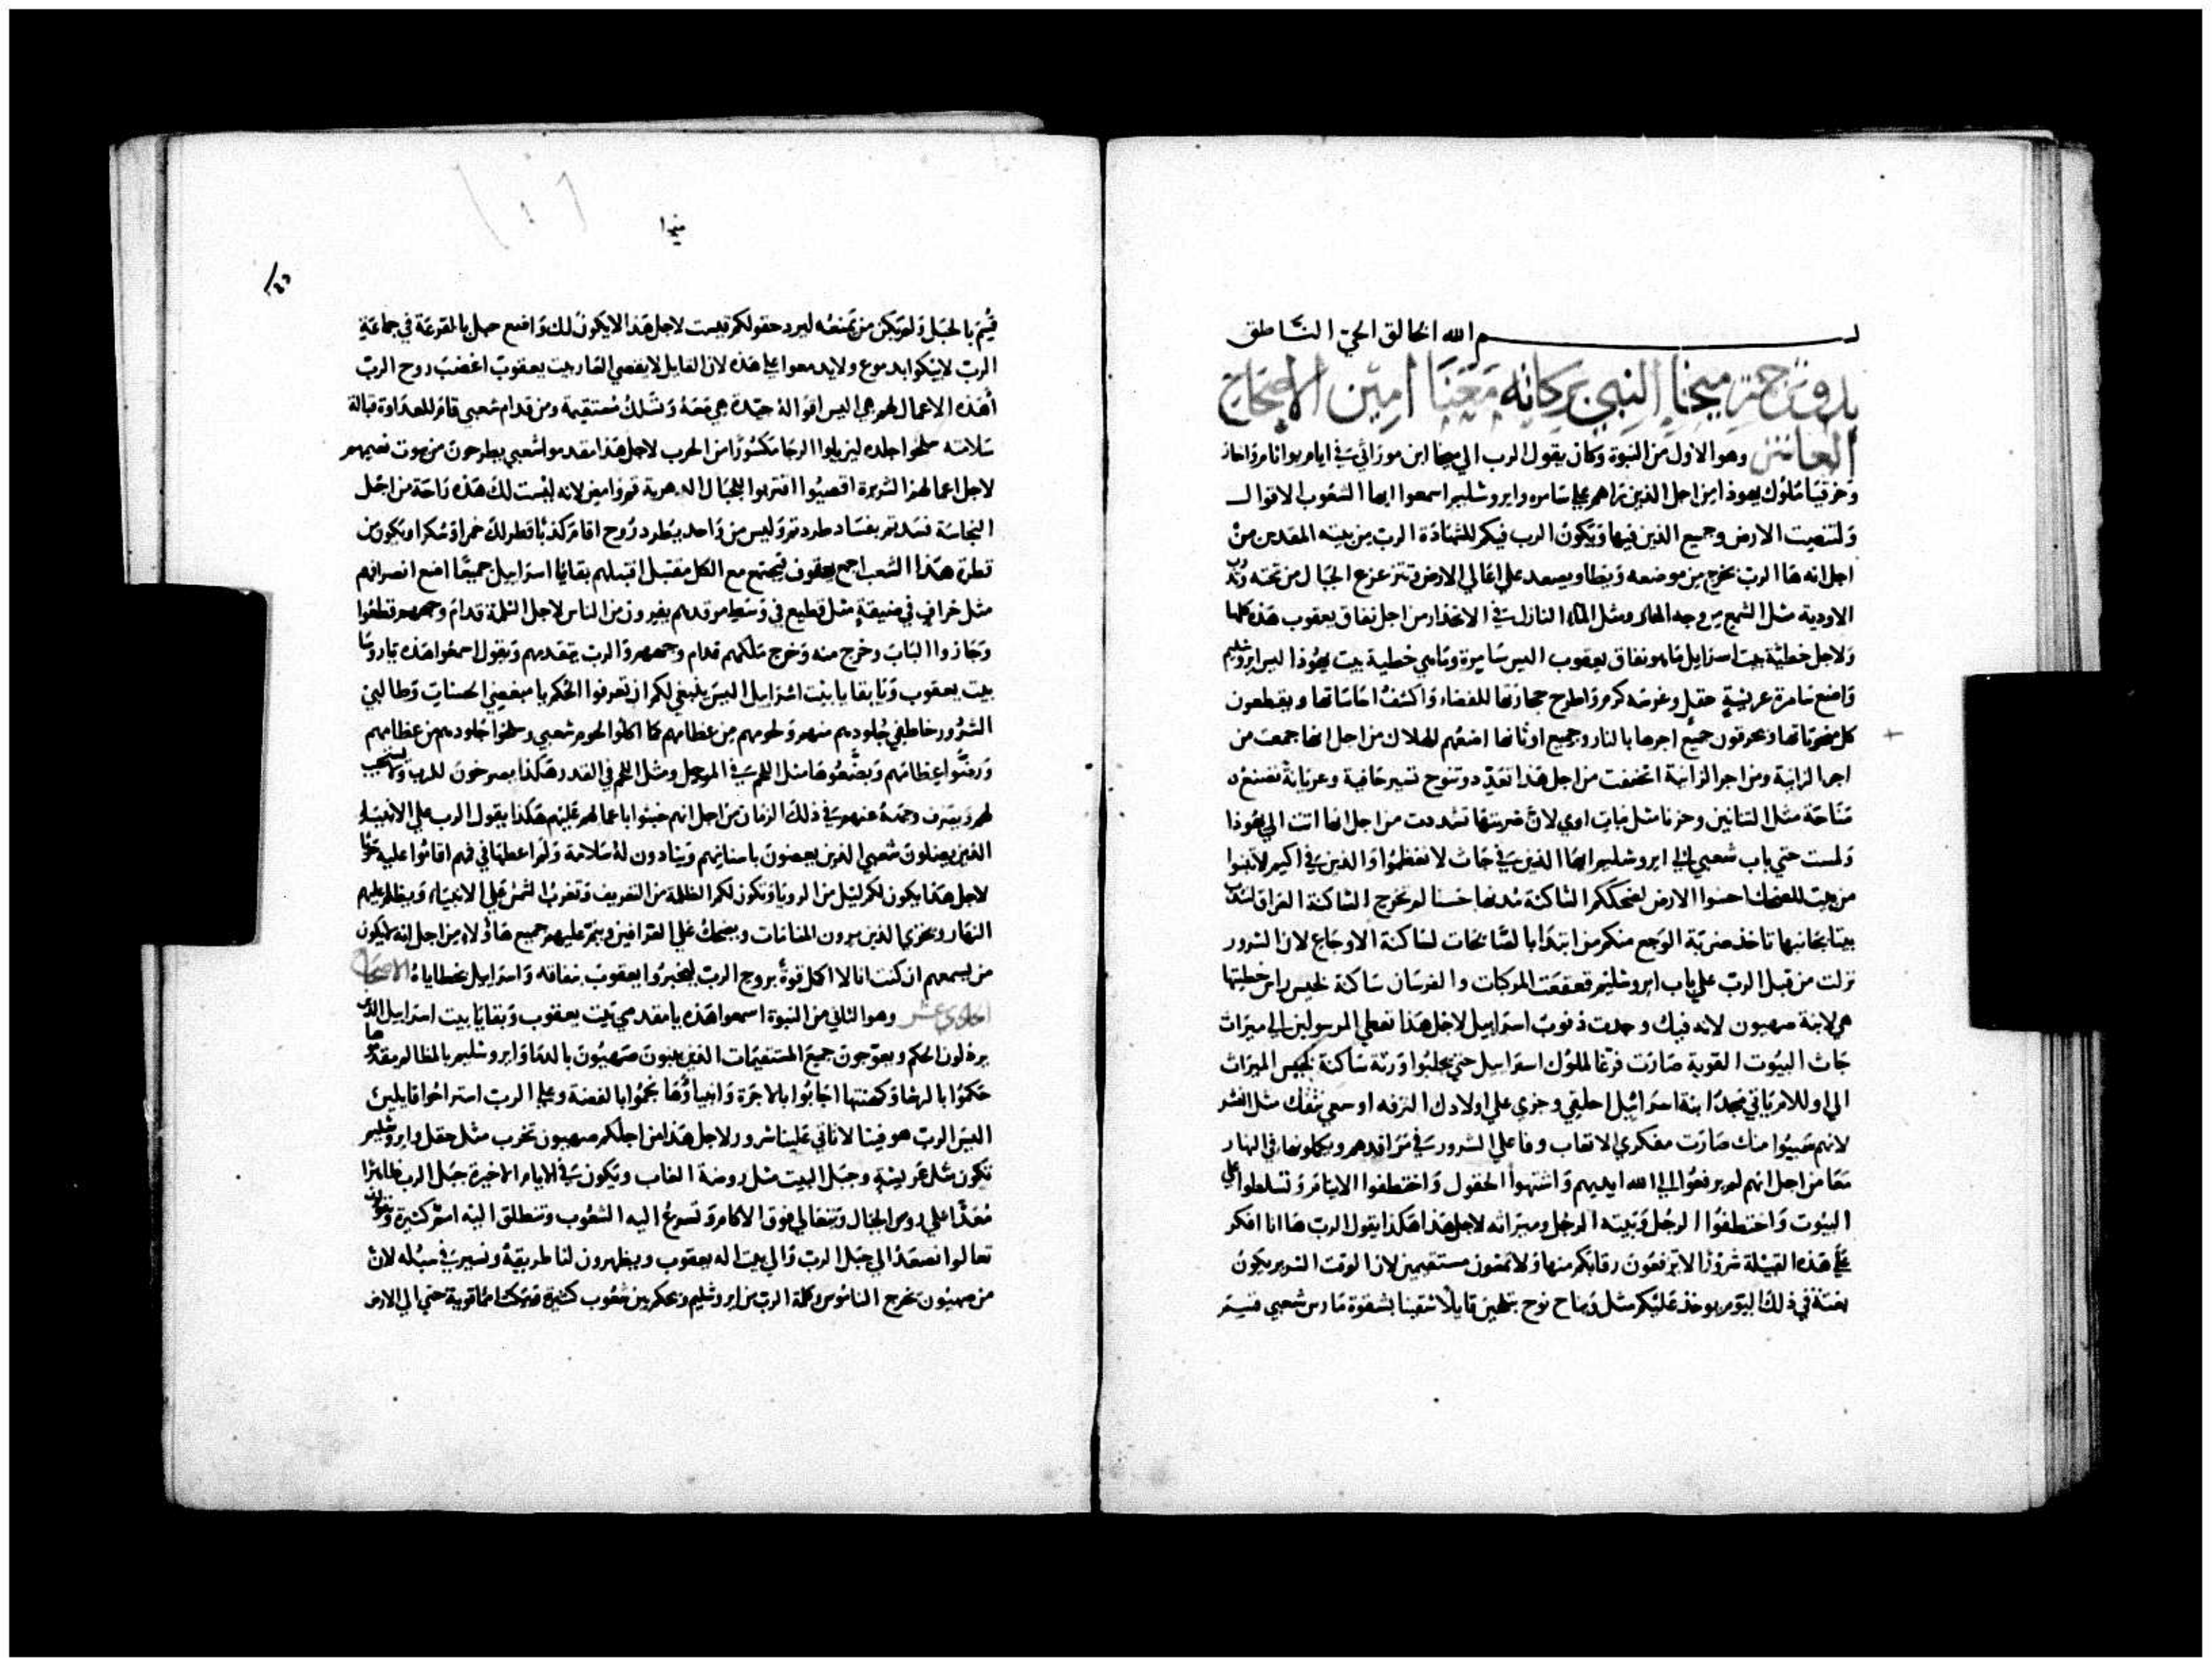 بسم الله الخالق الحي الناطق
بدو نبوة ميخا النبي بركاته معنا امين الاصحاح
العاشر وهو الاول من النبوة وكان يقول الرب الي ميخا ابن موراثي في ايام يواثام واحاز
وحزقيا ملوك يهوذا من اجل الذين تراهم علي سامره وايروشليم اسمعوا ايها الشعوب الاقوال
ولتنصت الارض وجميع الذين فيها ويكون الرب فيكم للشهادة الرب من بيته المقدس من
اجل انه ها الرب يخرج من موضعه ويطا ويصعد علي اعالي الارض وتتزعزع الجبال من تحته وتذوب
الاودية مثل الشمع من وجه النار ومثل الماء النازل في الانحدار من اجل نفاق يعقوب هذه كلها
ولاجل خطية بيت اسرايل ما هو نفاق يعقوب اليس سامرة وما هي خطية بيت يهوذا اليس ايروشليم
واضع سامرة عريشة حقل وغرسه كرم واطرح حجارتها للفضاء واكشف اساساتها ويقطعون
كل منحوتاتها ويحرقون جميع اجرها بالنار وجميع اوثانها اضعهم للهلاك من اجل انها جمعت من
اجر الزانية ومن اجر الزانية اتخفت من اجل هذا تعدد وتنوح تسير حافية وعريانة تصنع
مناحة مثل التنانين وحزنا مثل بنات اوي لان ضربتها تشددت من اجل انها اتت الي يهوذا
ولمست حتي باب شعبي الي ايروشليم ايها الذين في جاث لا تعظموا والذين في اكيم لا تبنوا
من بيت للضحك احثوا الارض لضحككم الساكنة مدنها حسنا لم تخرج الساكنة الفراق لتندب
بيتا بجانبها تاخذ ضربة الوجع منكم من ابتدا بالصالحات لساكنة الاوجاع لان الشرور
نزلت من قبل الرب علي باب ايروشليم قعقعة المركبات والفرسان ساكنة لخيس راس خطيتها
هي لابنة صهيون لانه فيك وجدت ذنوب اسراييل لاجل هذا تعطي المرسولين الي ميراث
جاث البيوت القوية صارت فرغا لملوك اسراييل حتي يجلبوا ورثة ساكنة لخيس الميراث
الي اوللام ياتي مجد ابنة اسراييل احلقي وجزي علي اولادك الترفه اوسعي نتفك مثل النسر
لانهم سبيوا منك صارت مفكري الاتعاب وفاعلي الشرور في مراقدهم ويكملونها في النهار
معا من اجل انهم لم يرفعوا الي الله ايديهم واشتهوا الحقول واختطفوا الايتام وتسلطوا علي
البيوت واختطفوا الرجل وبيته الرجل وميراثه لاجل هذا هكذا يقول الرب ها انا افكر
علي هذه القبيلة شرورا لا ترفعون رقابكم منها ولا تمشون مستقيمين لان الوقت الشرير يكون
بغتة في ذلك اليوم يوخذ عليكم مثل ويناح نوح بتلحين قايلا شقينا بشقوة مارس شعبي قسم
ميخا
قيم بالحبل ولم يكن من يمنعه ليرد حقولكم قسمت لاجل هذا لا يكون لك واضع حبل بالقرعة في جماعة
الرب لا تبكوا بدموع ولا يدمعوا علي هذه لان القايل لا يقصي العار بيت يعقوب اغضب روح الرب
أهذه الاعمال لهم هي اليس اقواله جيدة هي معه وتسلك مستقيمة ومن قدام شعبي قام للعداوة قبالة
سلامته سلخوا جلده ليزيلوا الرجا مكسورا من الحرب لاجل هذا مقدموا شعبي يطرحون من بيوت نعيمهم
لاجل اعمالهم الشريرة اقصيوا اقتربوا للجبال الدهرية قم وامض لانه ليست لك هذه راحة من اجل
النجاسة فسدتم بفساد طردتم وليس من واحد يطرد روح اقام كذبا قطر لك خمرا وسكرا ويكون من
قطرة هذا الشعب اجمع يعقوب يجتمع مع الكل مقتبل اقتبلهم بقايا اسراييل جميعا اضع انصرافهم
مثل خراف في ضيقة مثل قطيع في وسط مرقدهم يفيرون من الناس لاجل الثلمة قدام وجههم قطعوا
وجازوا الباب وخرج منه وخرج ملكهم قدام وجههم والرب يتقدمهم ويقول اسمعوا هذه يا روسا
بيت يعقوب ويا بقايا بيت اسراييل اليس ينبغي لكم ان تعرفوا الحكم يا مبغضي الحسنات وطالبي
الشرور خاطفي جلودهم منهم ولحومهم من عظامهم كما اكلوا لحوم شعبي وسلخوا جلودهم من عظامهم
ورضوا عظامهم وبضعوها مثل اللحم في المرجل ومثل اللحم في القدر هكذا يصرخون للرب ولا يستجيب
لهم ويصرف وجهه عنهم في ذلك الزمان من اجل انهم خبثوا باعمالهم عليهم هكذا يقول الرب علي الانبياء
الذين يضلون شعبي الذين يعضون باسنانهم وينادون له سلامة ولم اعطها في فمهم اقاموا عليه حربا
لاجل هذا يكون لكم ليل من الرويا وتكون لكم الظلمة من التعريف وتغرب الشمس علي الانبياء ويظلم عليهم
النهار ويخزي الذين يرون المنامات ويضحك علي العرافين وينم عليهم جميع هاولاء من اجل انه لا يكون
من يسمعهم ان كنت انا لا اكمل قوة بروح الرب ليخبروا يعقوب بنفاقه واسراييل بخطاياه الاصحاح
الحادي عشر وهو الثاني من النبوة اسمعوا هذه يا مقدمي بيت يعقوب وبقايا بيت اسراييل الذين
يرذلون الحكم ويعوجون جميع المستقيمات الذين يبنون صهيون بالدما وايروشليم بالمظالم مقدموها
حكموا بالرشا وكهنتها اجابوا بالاجرة وانبياؤها نجموا بالفضة وعلي الرب استراحوا قايلين
اليس الرب هو فينا لا تاتي علينا شرور لاجل هذا من اجلكم صهيون تخرب مثل حقل وايروشليم
تكون مثل عريشة وجبل البيت مثل روضة الغاب ويكون في الايام الاخيرة جبل الرب ظاهرا
معدا علي روس الجبال ويتعالي فوق الاكام وتسرع اليه الشعوب وتنطلق اليه امم كثيرة ويقولون
تعالوا نصعد الي جبل الرب والي بيت اله يعقوب ويظهرون لنا طريقه ونسير في سبله لان
من صهيون تخرج الناموس وكلمة الرب من ايروشليم ويحكم بين شعوب كثيرة ويبكت امما قوية حتي الي الارض